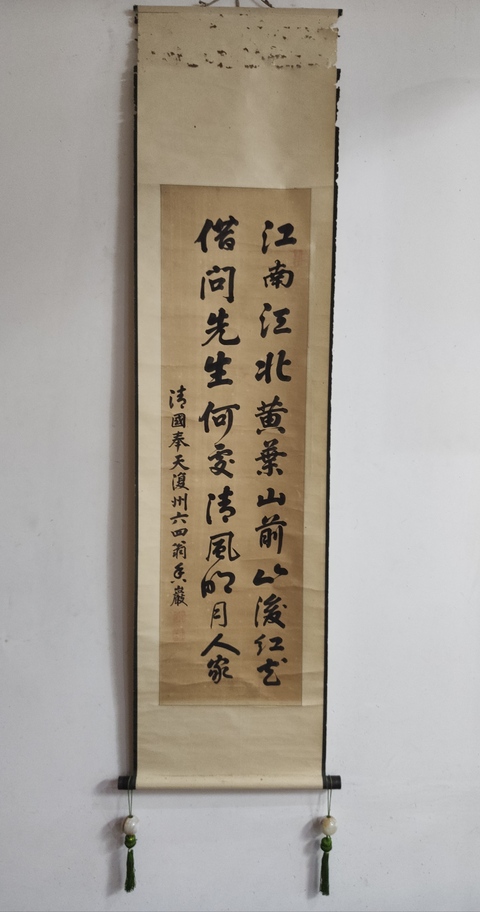 江南江北黄葉山前山後红花
借问先生何處清風明月人家
清國奉天復州六四翁香巖